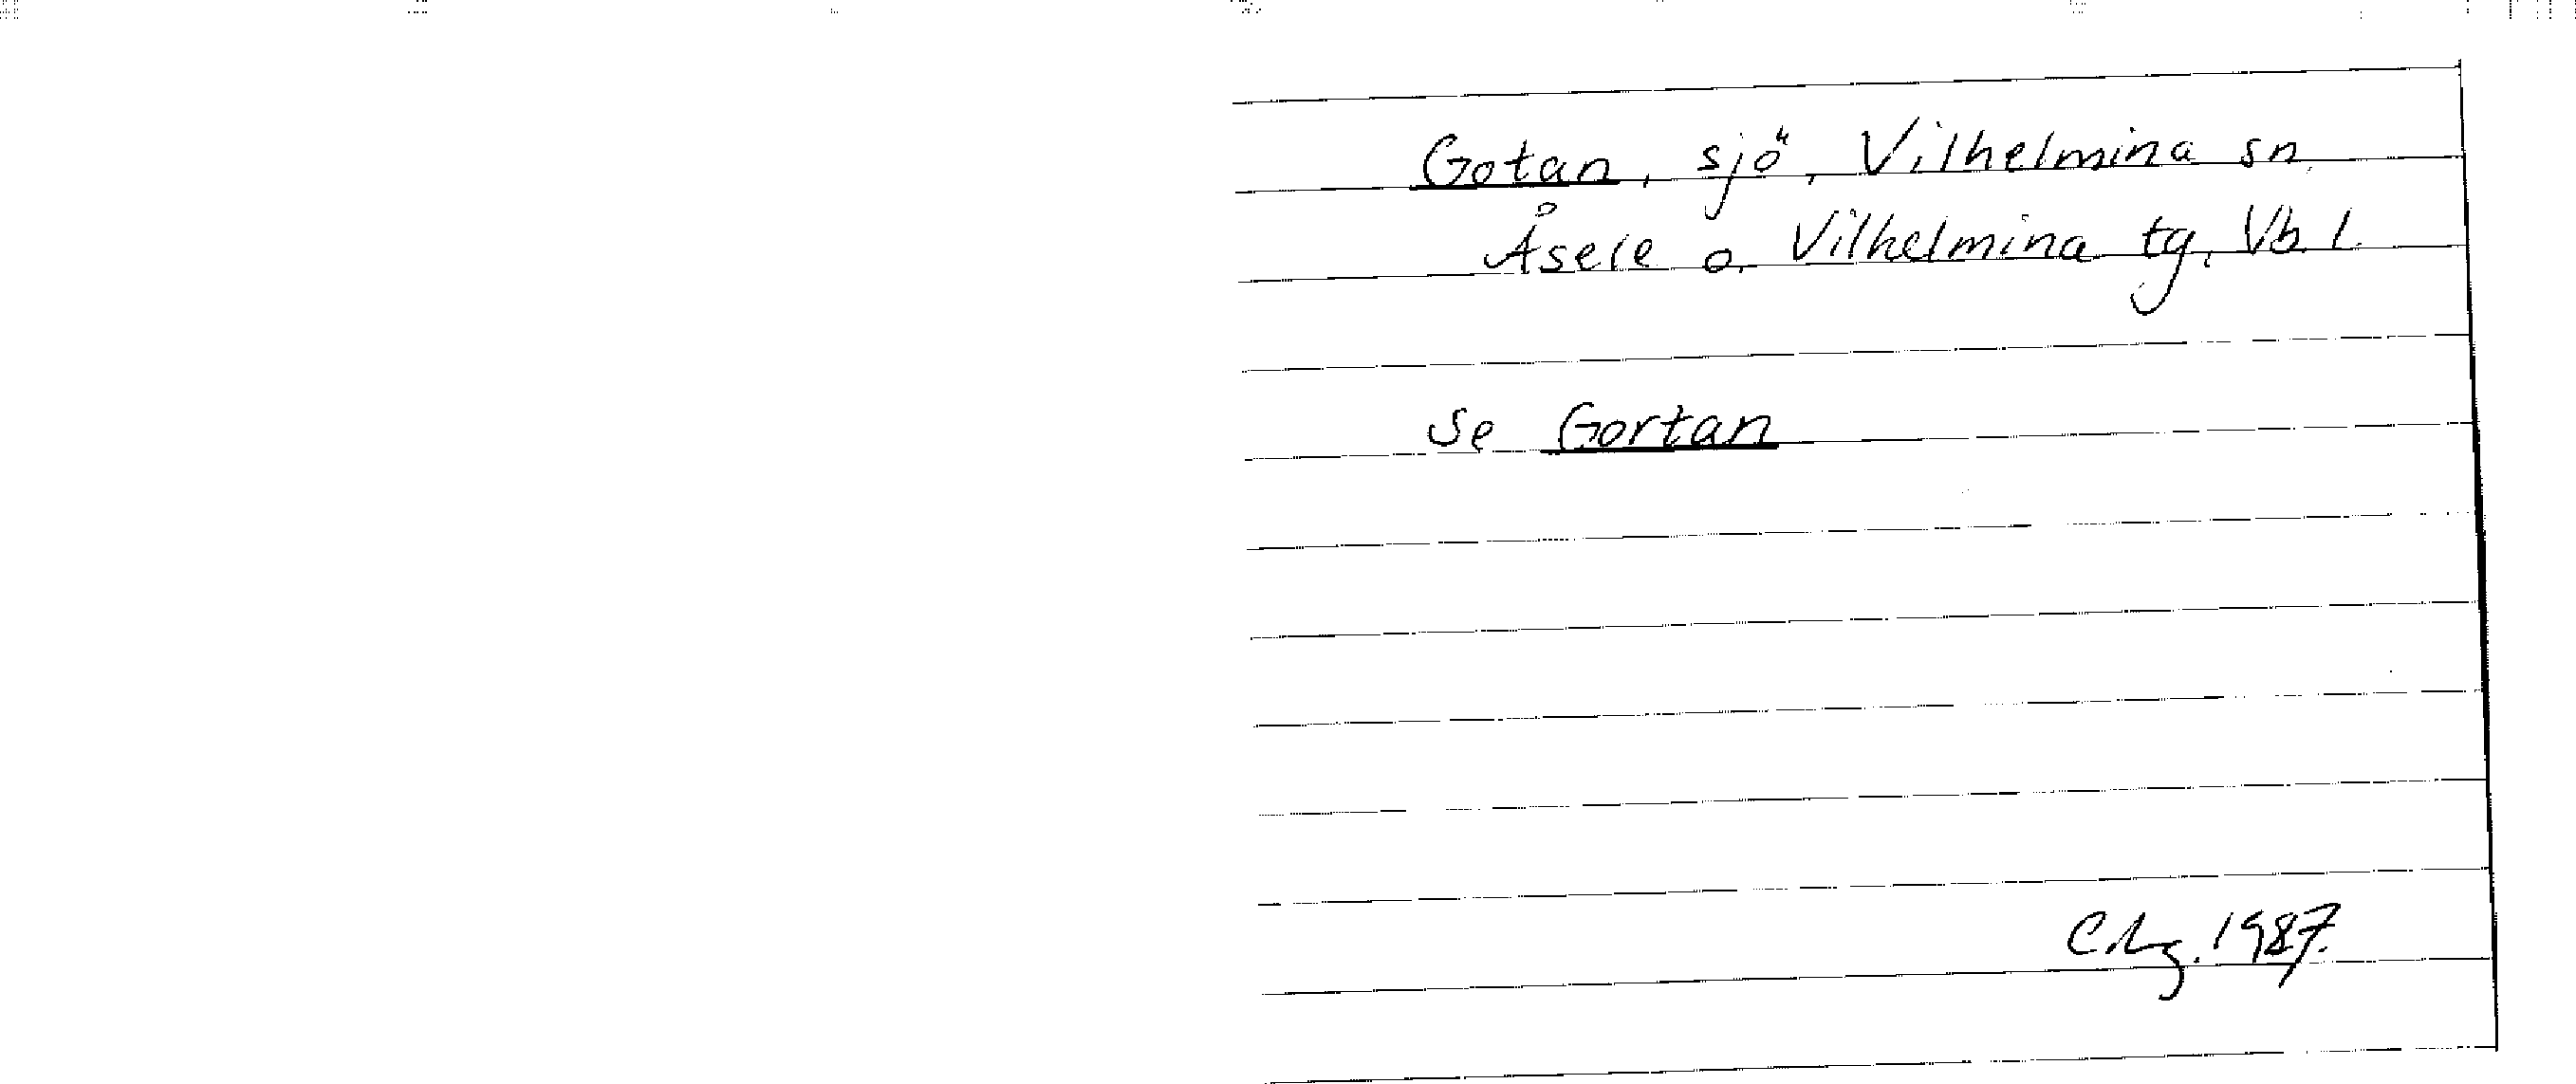 Gotan, sjö, Vilhelmina sn,
Åsele o. Vilhelmina tg, Vb. l.
Se Gortan
1987.